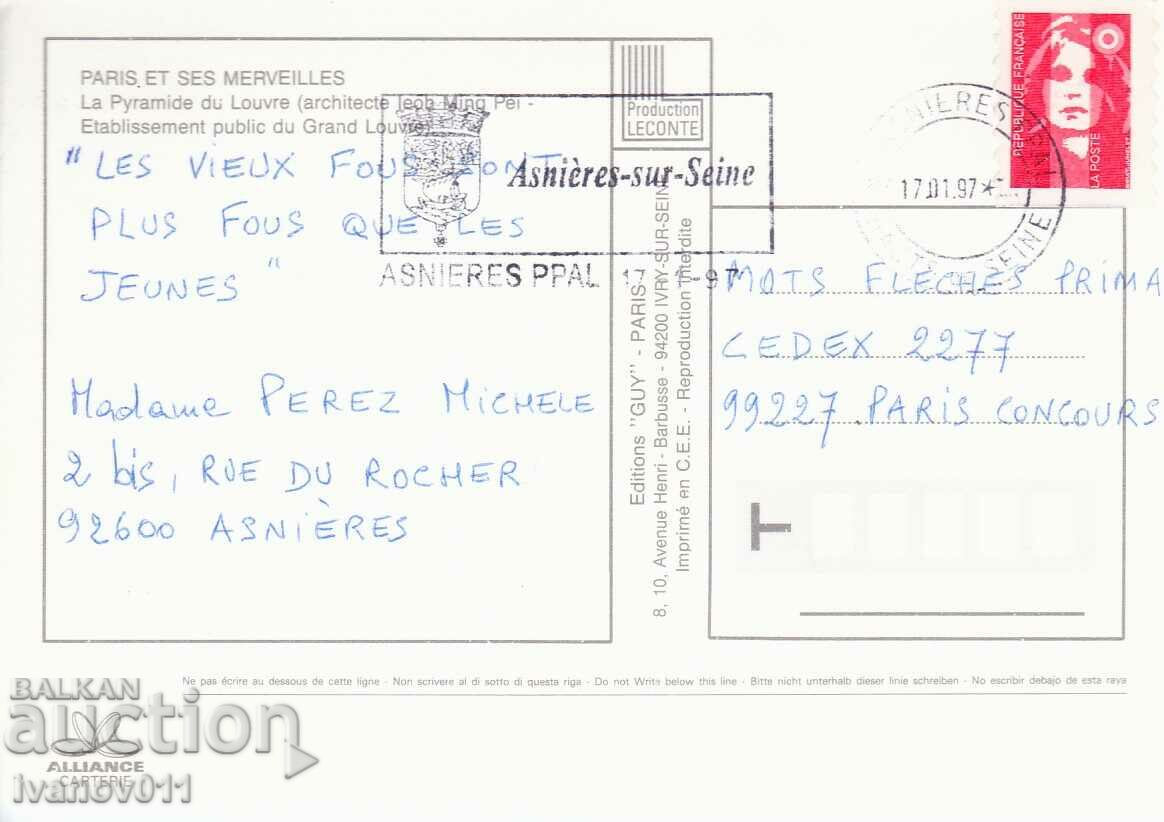 PARIS ET SES MERVEILLES
La Pyramide du Louvre (architecte Ieoh Ming Pei -
Etablissement public du Grand Louvre)
"LES VIEUX FOUS SONT
PLUS FOUS QUE LES
JEUNES"
Madame PEREZ MICHELE
2 bis, RUE DU ROCHER
92600 ASNIÈRES
Production
LECONTE
Asnières-sur-Seine
ASNIERES PPAL 17 1-97
Editions "GUY" - PARIS
8, 10, Avenue Henri - Barbusse - 94200 IVRY-SUR-SEINE
Imprimé en C.E.E. - Reproduction interdite
REPUBLIQUE FRANÇAISE
LA POSTE
ASNIERES
17.01.97
SEINE
MOTS FLECHES PRIMA
CEDEX 2277
99227 PARIS CONCOURS
T
Ne pas écrire au dessous de cette ligne - Non scrivere al di sotto di questa riga - Do not Write below this line - Bitte nicht unterhalb dieser linie schreiben - No escribir debajo de esta raya
BALKAN
auction
ALLIANCE
CARTERIE
ivanov011